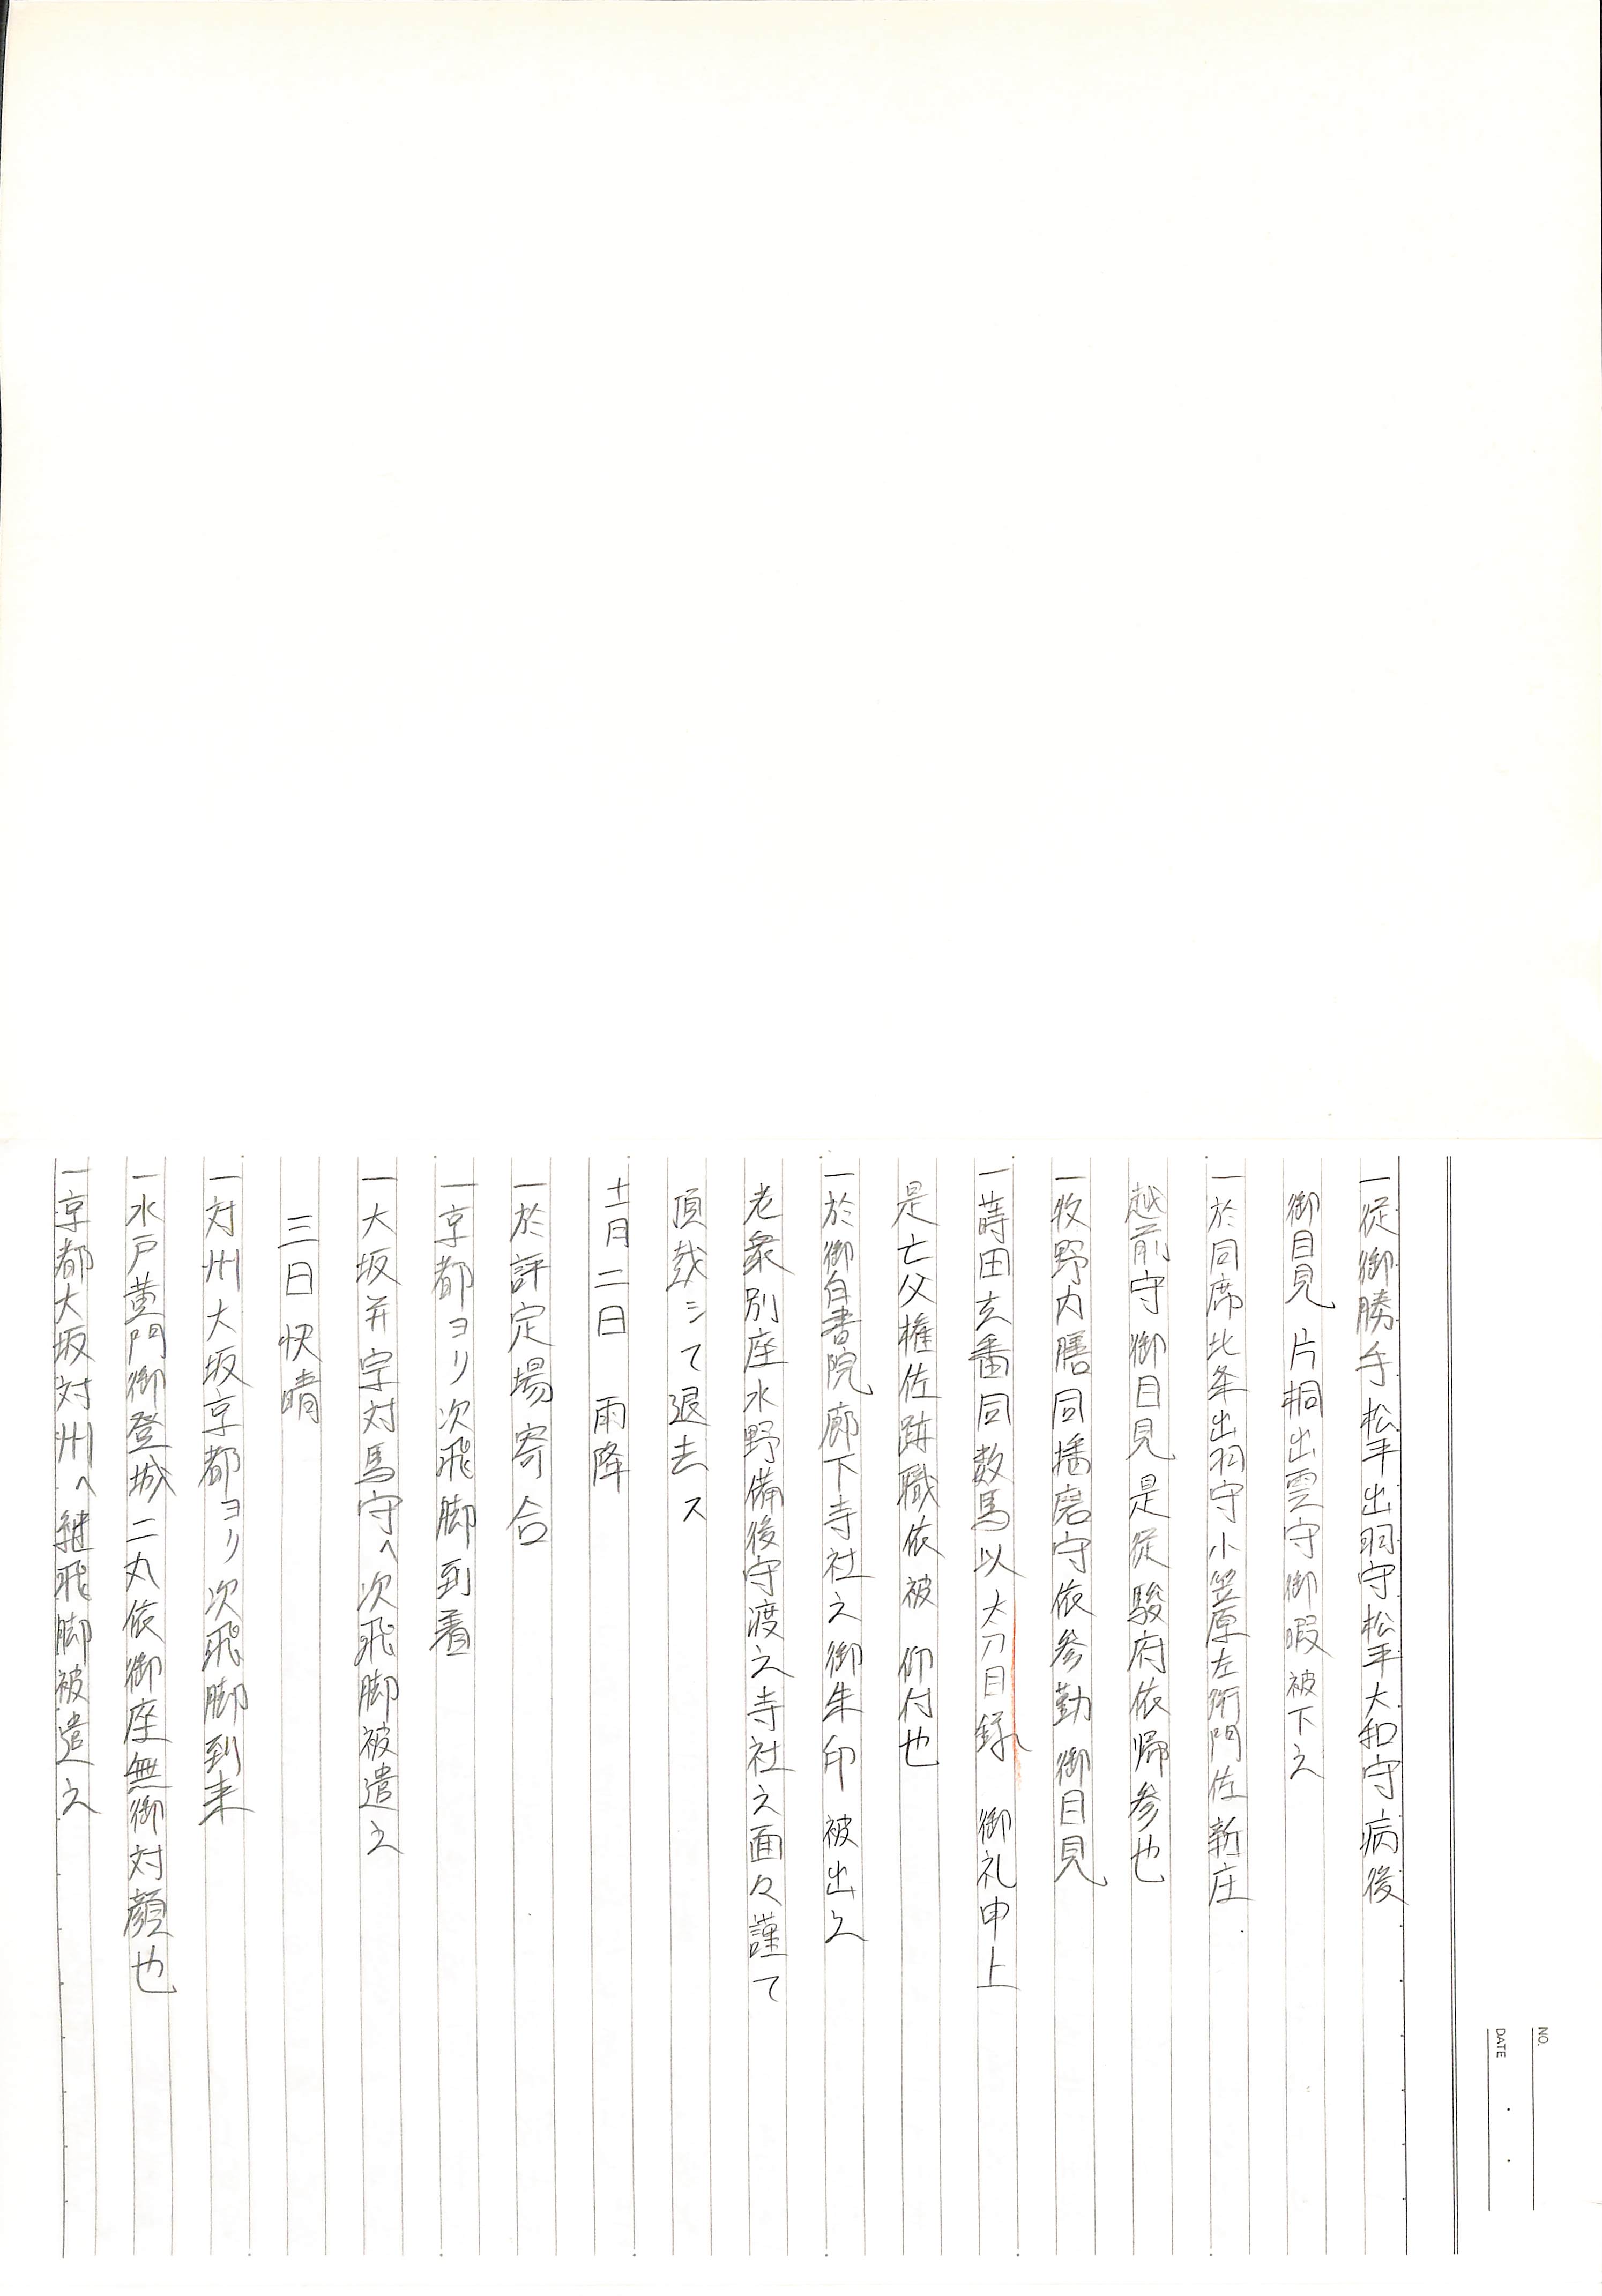 NO.
DATE
一従御勝手松平出羽守松平大和守病後
御目見 片桐出雲守御暇被下之
一於同席北条出羽守小笠原左衛門佐新庄
越前守御目見是従駿府依帰参也
一牧野内膳同播磨守依参勤 御目見
一蒔田玄番同数馬以太刀目録 御礼申上
是亡父権佐跡職依被 仰付也
一於御白書院廊下寺社之御朱印 被出之
老衆別座水野備後守渡之寺社之面々謹て
頂戴シて退去ス
十一月二日 雨降
一於評定場寄合
一京都ヨリ次飛脚到着
一大坂并宗対馬守へ次飛脚被遣之
三日 快晴
一対州大坂京都ヨリ次飛脚到来
一水戸黄門御登城二丸依御座無御対顔也
一京都大坂対州へ継飛脚被遣之